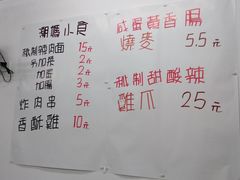 潮媽小食
秘制辣肉面 15元
另加菜 2元
加蛋 2元
加腸 3元
炸肉串 5元
香酥雞 10元
咸蛋黃香腸
燒麥 5.5元
秘制甜酸辣
雞爪 25元